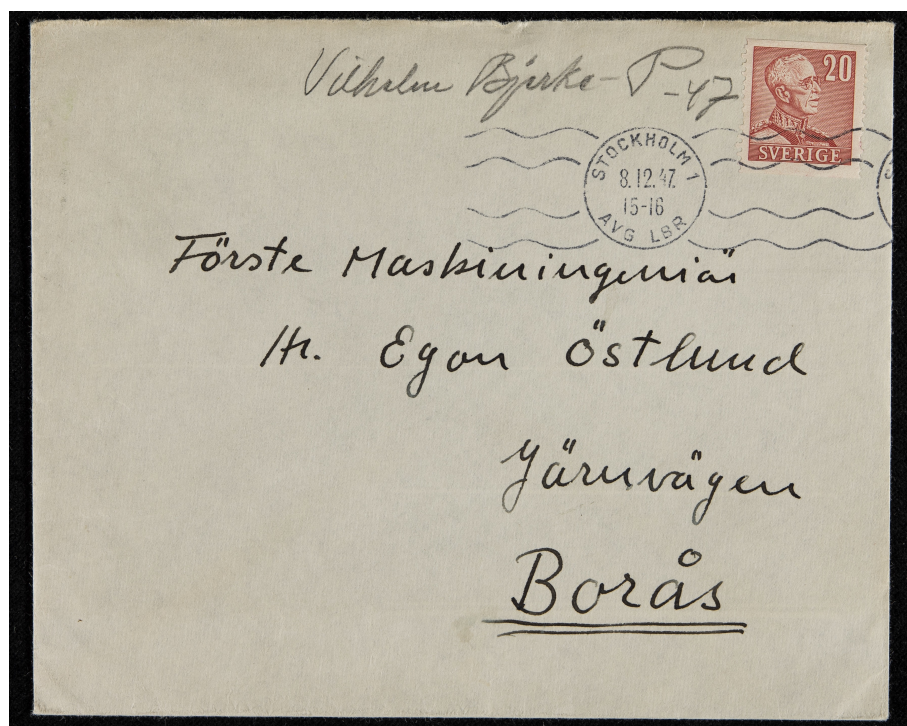 Vilhelm Bjerke-P -47
20
SVERIGE
STOCKHOLM 1
8.12.47.
15-16
AVG LBR
Förste Maskiningeniör
Hr. Egon Östlund
Järnvägen
Borås